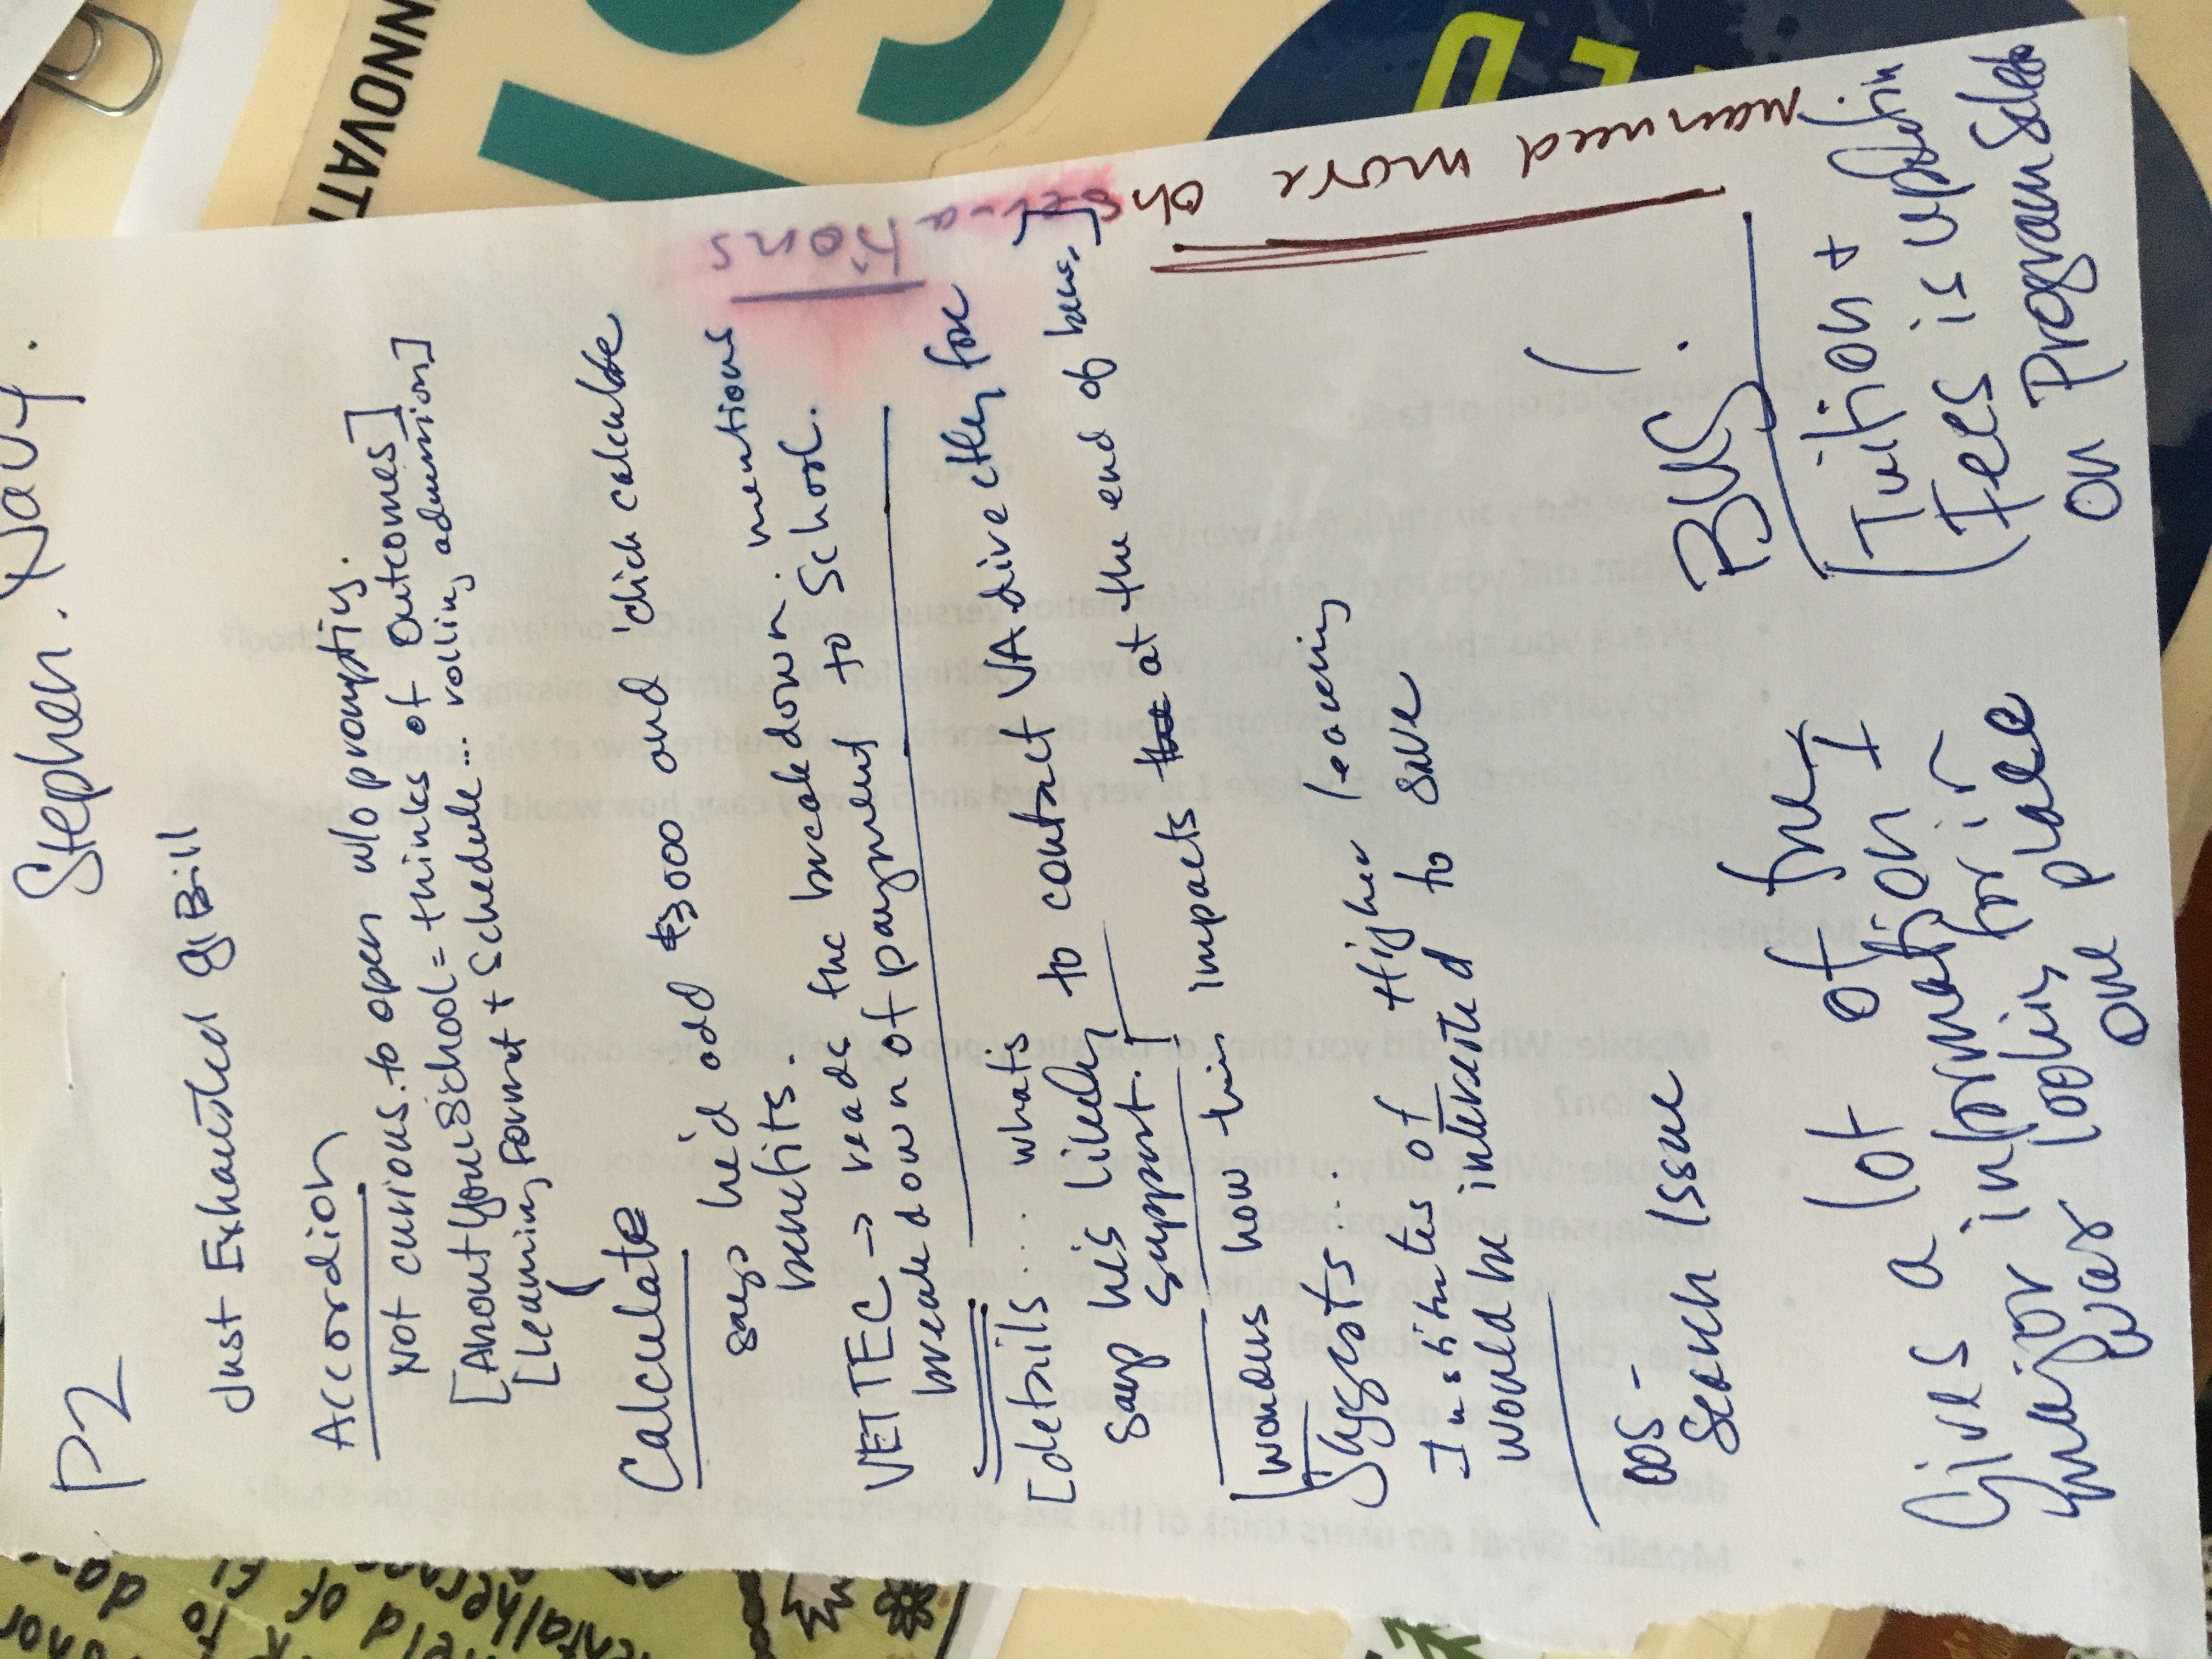 P2
Stephen. Navy.
Just Exhausted GI Bill
Accordion
Not curious to open w/o prompting.
[About Your School = thinks of Outcomes]
[Learning Format + Schedule ... rolling admission]
Calculate
says he'd add $3000 and 'click calculate
benefits.
VET TEC → reads the breakdown. mentions
breakdown of payment to School.
[details .... what's
says he's likely to contact VA directly for
support.]
[wonders how this impacts the at the end of
Suggests...
Institutes of Higher learning
would be interested to save
OOS -
Search Issue
BUG!
Tuition +
Fees is updatin
on Program Select
Gives a lot of the
major information I
was looking for in
one place
need more observations
NNOVATI